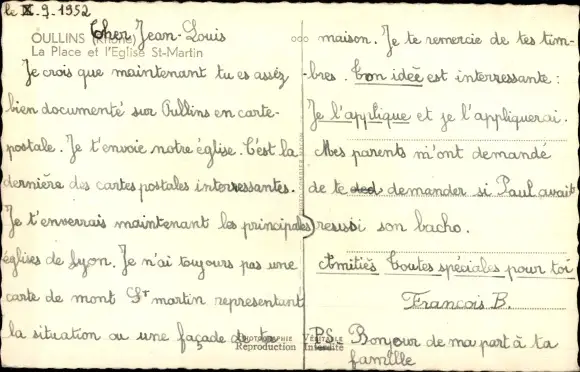 le X. 9. 1952
OULLINS (Rhône)
La Place et l'Eglise St-Martin
Cher Jean-Louis
Je crois que maintenant tu es aséz
bien documenté sur Oullins en carte-
postale. Je t'envoie notre église. C'est la
dernière des cartes postales interressantes.
Je t'enverrais maintenant les principales
églises de Lyon. Je n'ai toujours pas une
carte de mont St martin representant
la situation ou une façade de ta
maison. Je te remercie de tes tim-
-bres. Ton idée est interressante :
Je l'applique et je l'appliquerai.
Mes parents m'ont demandé
de te demander si Paul avait
reussi son bacho.
Amitiés toutes spéciales pour toi
François B.
PS Bonjour de ma part à ta
famille
PHOTOGRAPHIE VÉRITABLE
Reproduction Interdite
5